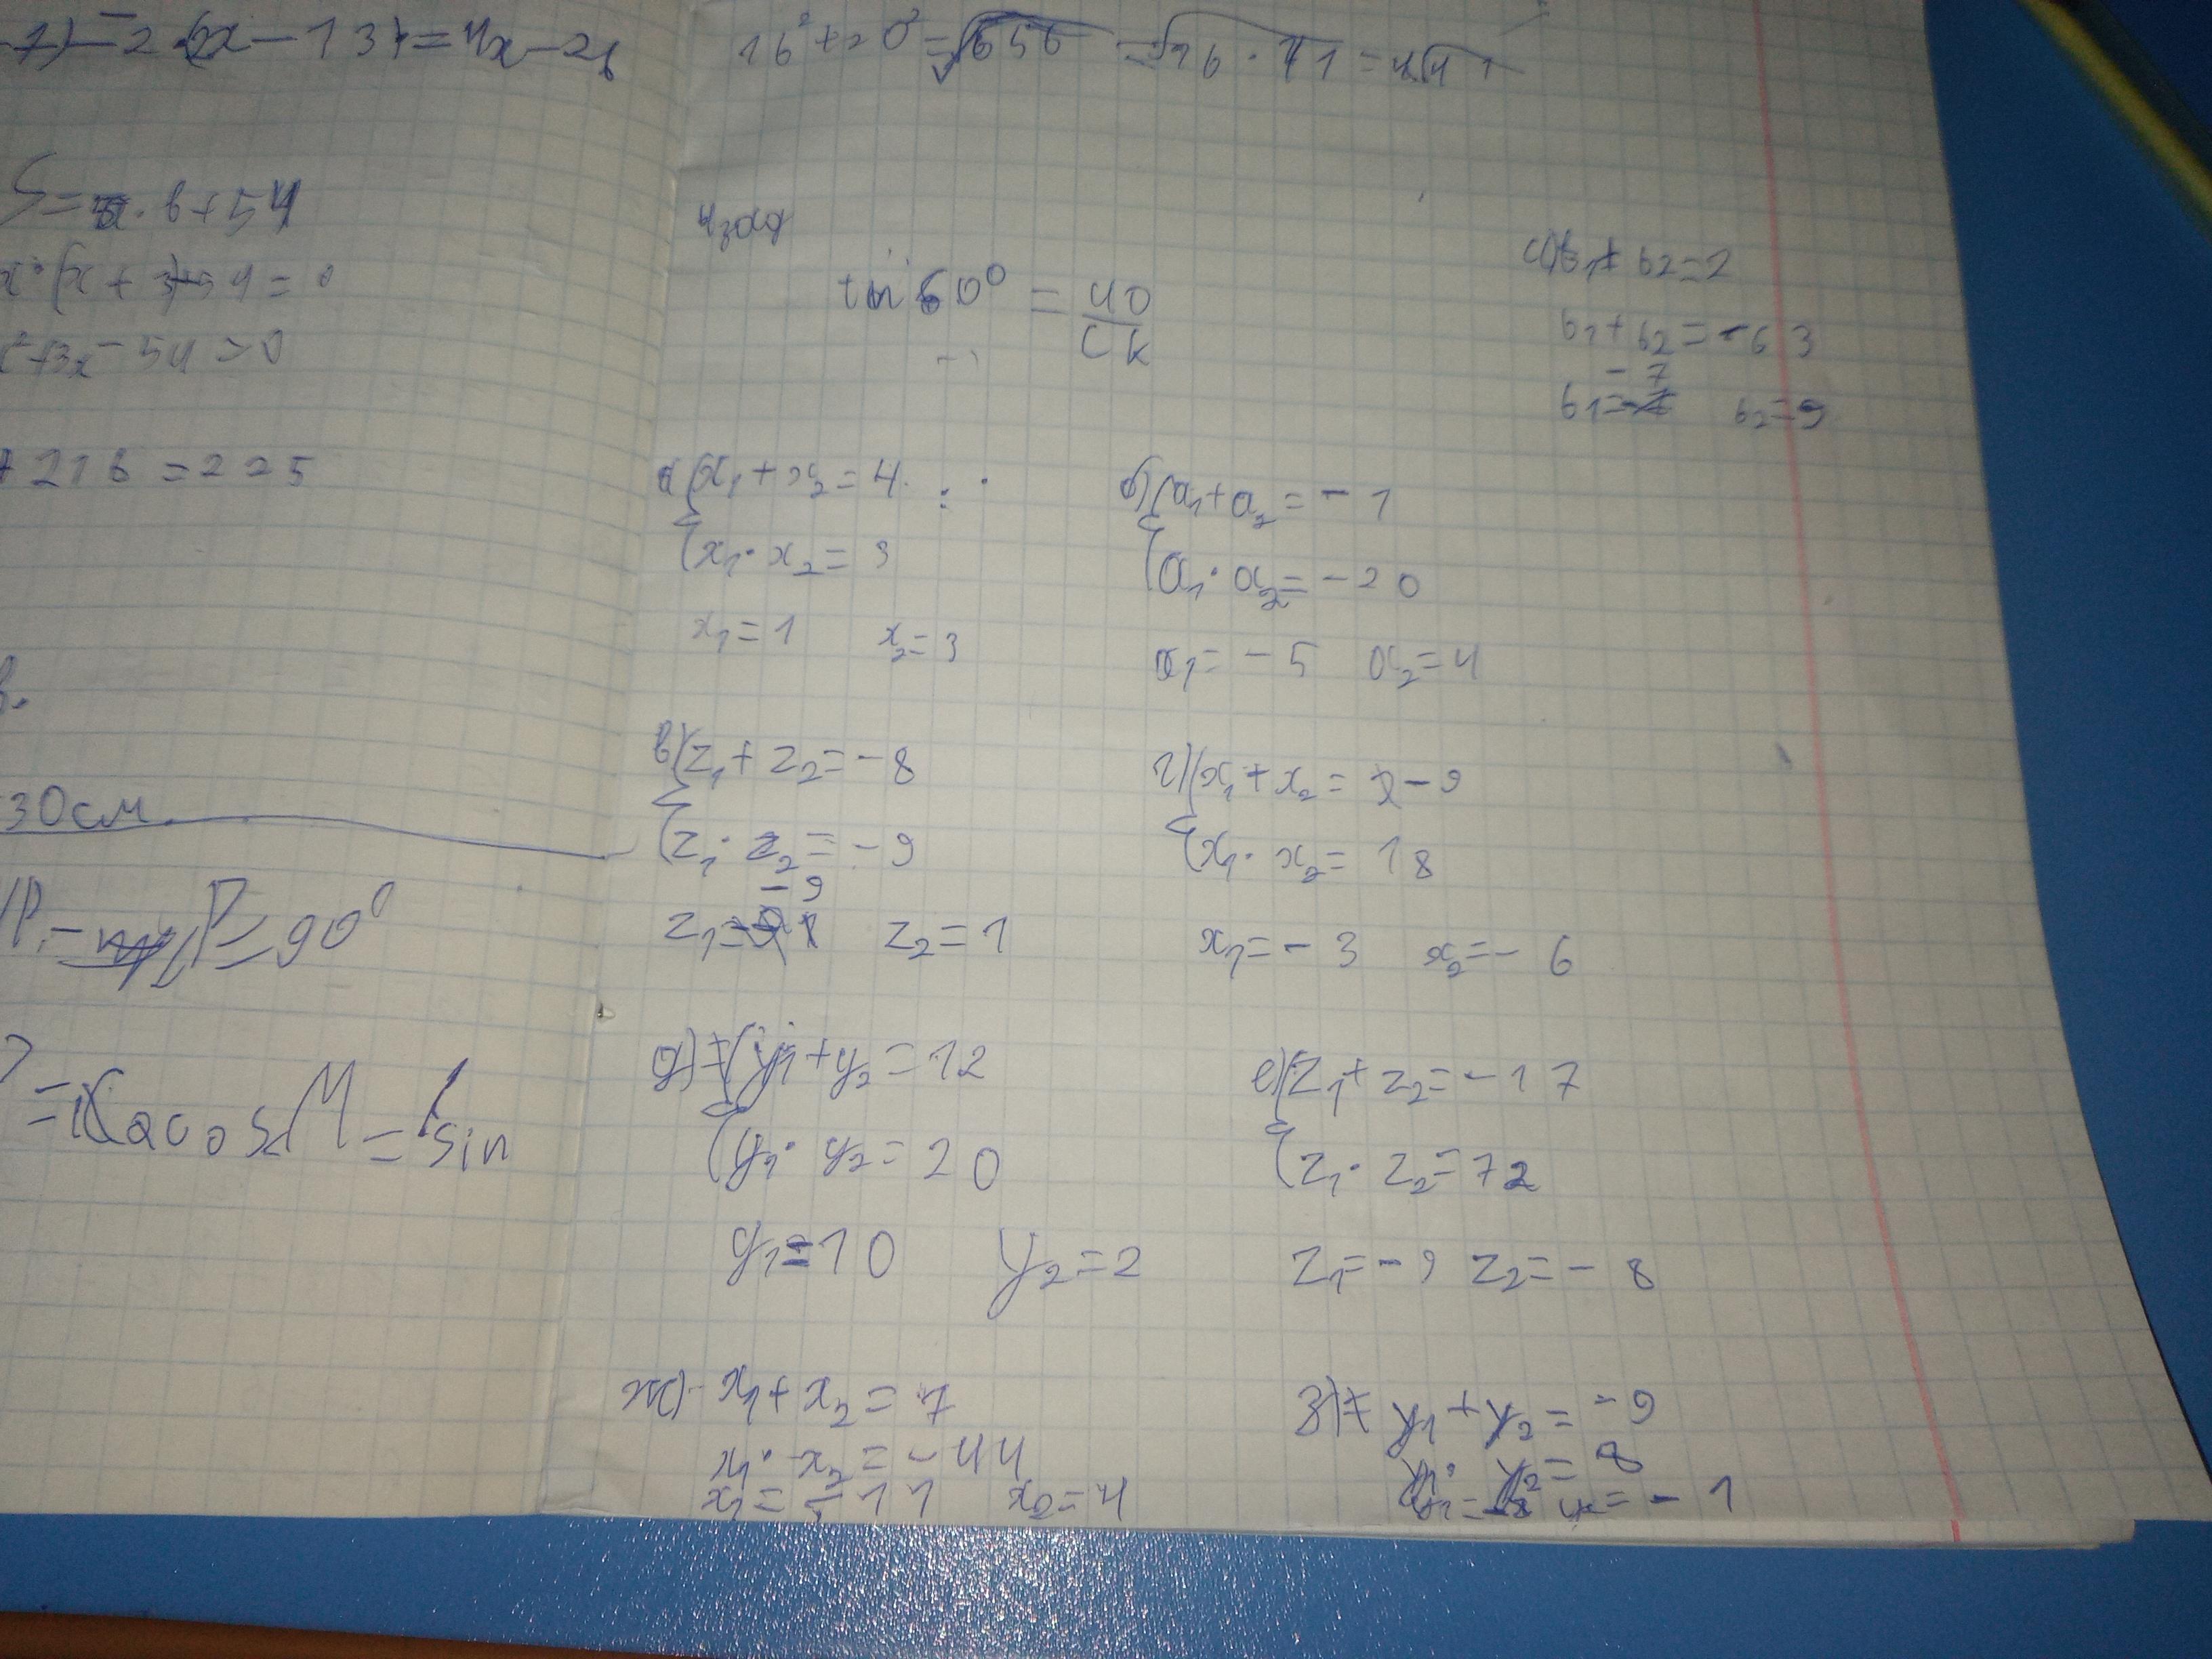 -2(2x-13)=4x-26
S=a·b+54
x·(x+3)-54=0
x²+3x-54=0
+216=225
в.
30см
P=90⁰
=Cos M=sin
16²+20²=√656=√16·41=4√41
4зад
tn60⁰=40/CK
b₁+b₂=2
b₁+b₂=-63
b₁=-7 b₂=9
а){x₁+x₂=4
x₁·x₂=3
x₁=1 x₂=3
б){a₁+a₂=-1
a₁·a₂=-20
a₁=-5 a₂=4
в){z₁+z₂=-8
z₁·z₂=-9
z₁=-9 z₂=1
г){x₁+x₂=-9
x₁·x₂=18
x₁=-3 x₂=-6
д){y₁+y₂=12
y₁·y₂=20
y₁=10 y₂=2
е){z₁+z₂=-17
z₁·z₂=72
z₁=-9 z₂=-8
ж) x₁+x₂=7
x₁·x₂=-44
x₁=11 x₂=4
з) y₁+y₂=-9
y₁·y₂=8
y₁=-8 y₂=-1